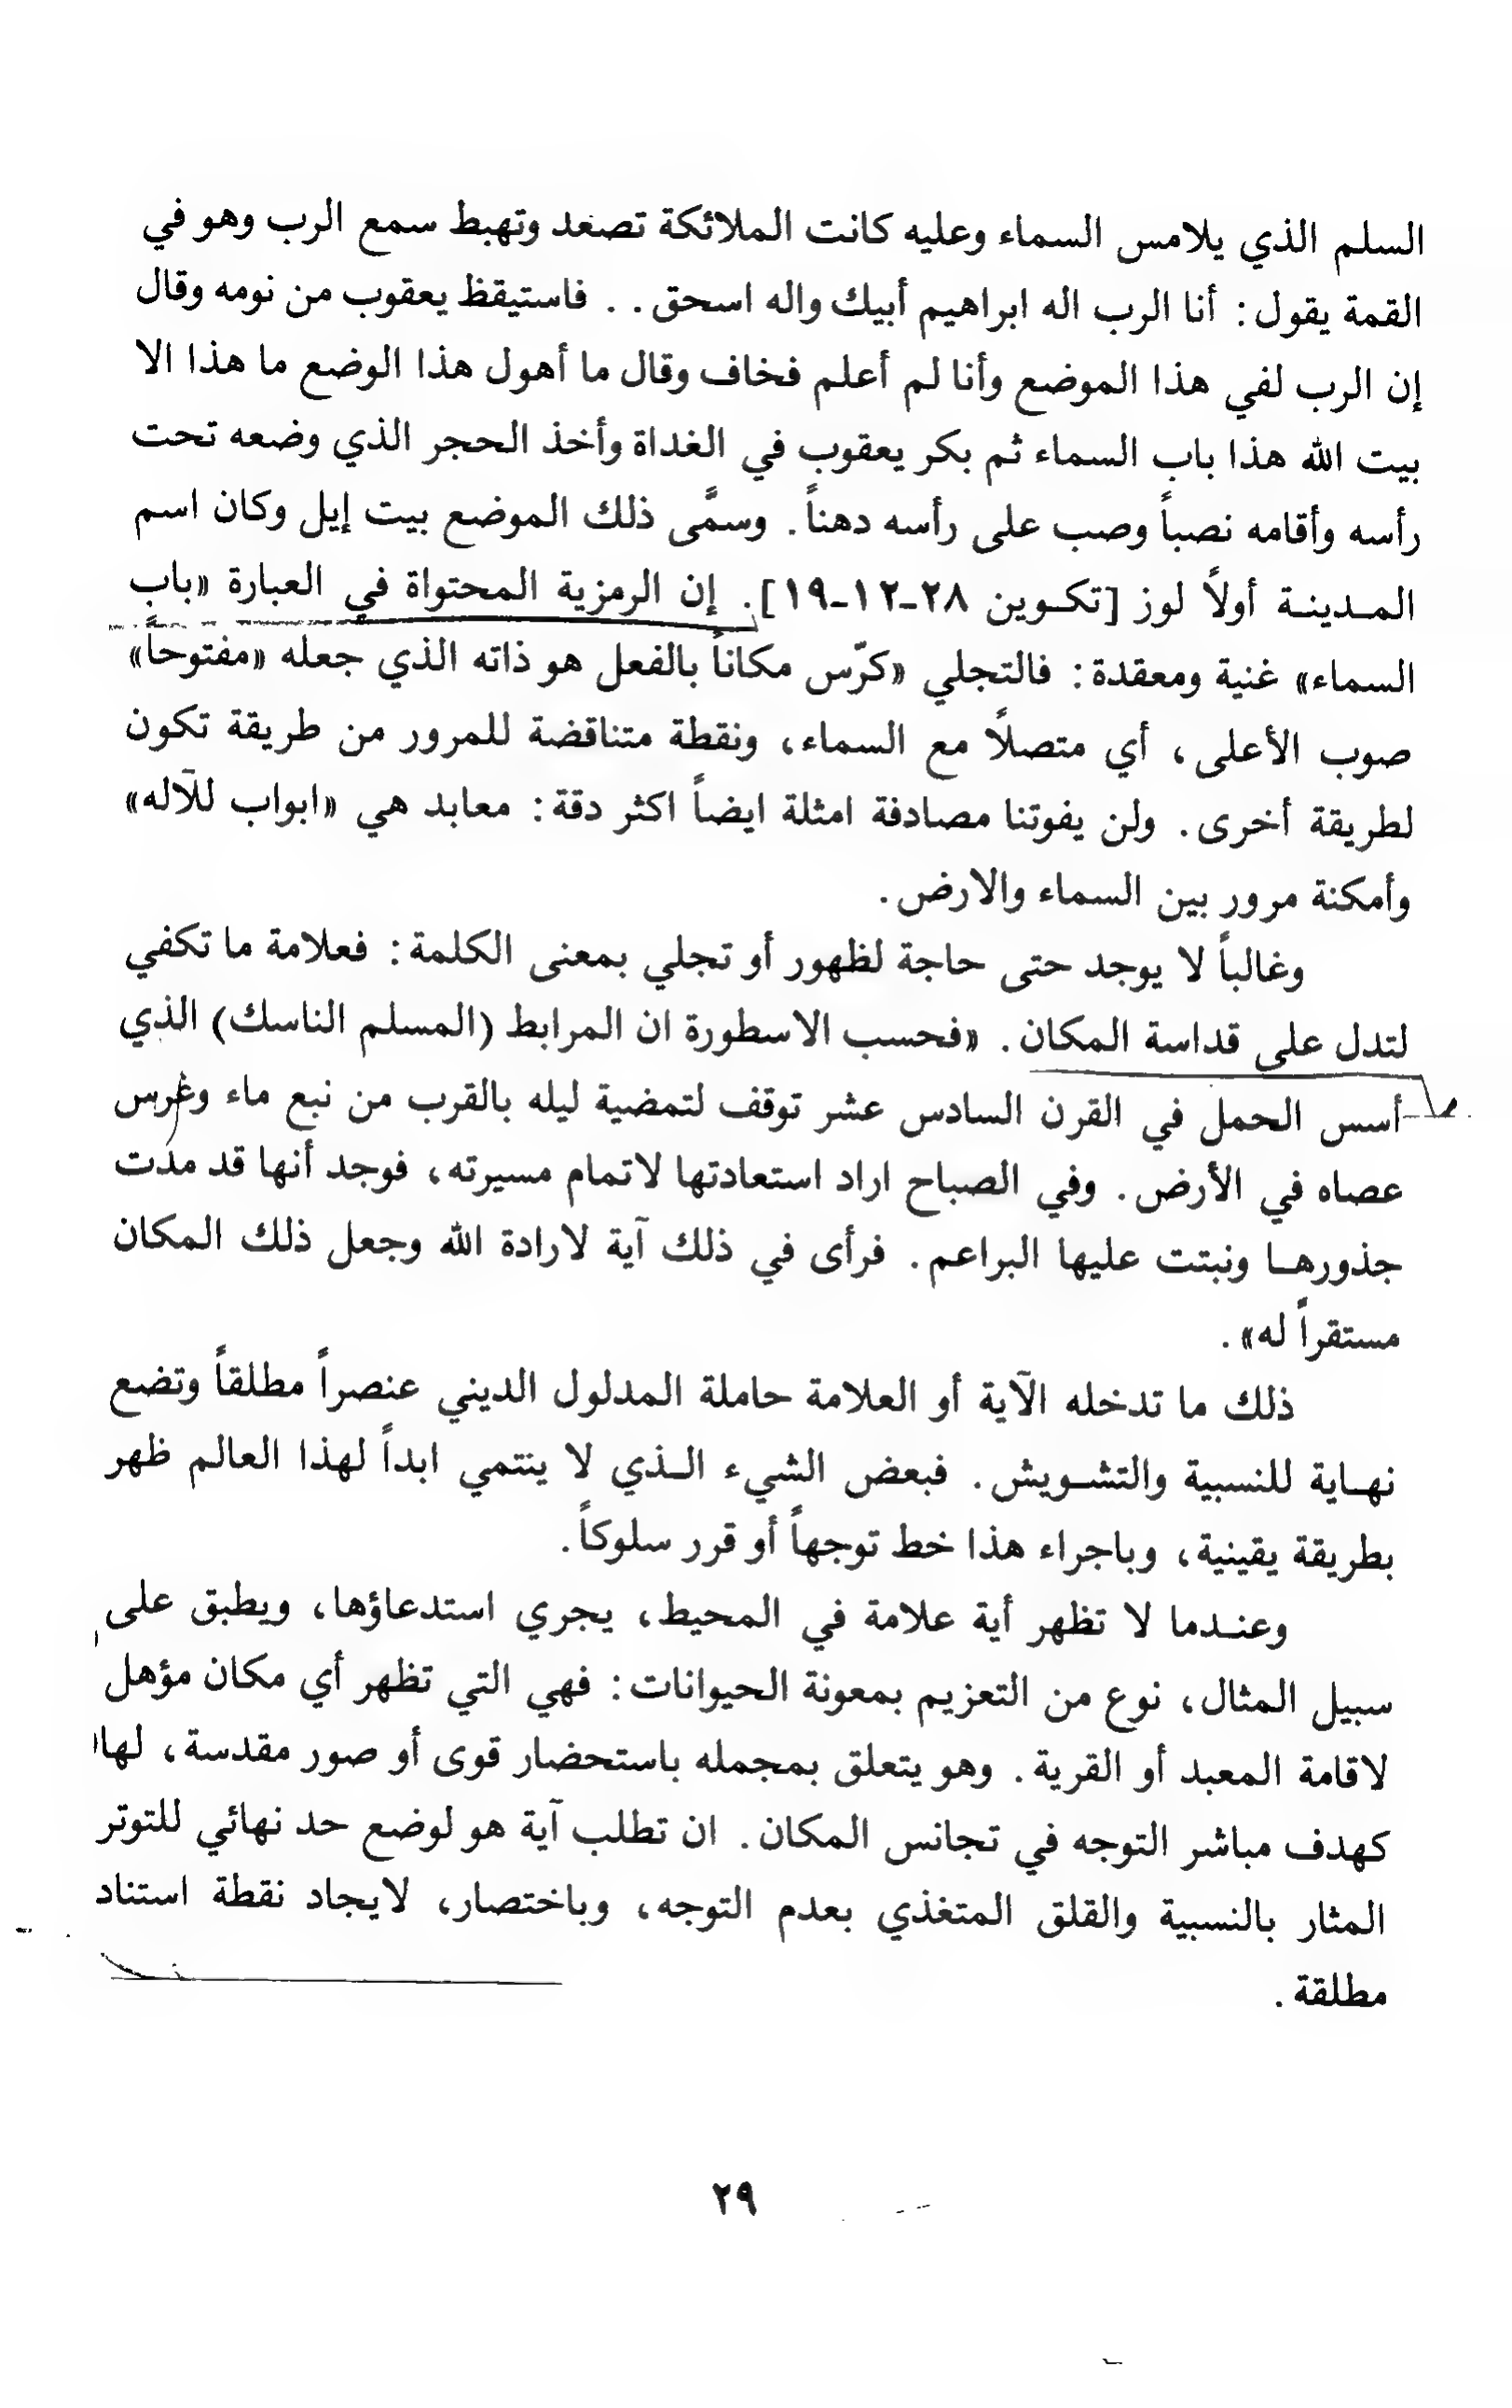 السلم الذي يلامس السماء وعليه كانت الملائكة تصعد وتهبط سمع الرب وهو في
القمة يقول: أنا الرب اله ابراهيم أبيك واله اسحق . . فاستيقظ يعقوب من نومه وقال
إن الرب لفي هذا الموضع وأنا لم أعلم فخاف وقال ما أهول هذا الوضع ما هذا الا
بيت الله هذا باب السماء ثم بكر يعقوب في الغداة وأخذ الحجر الذي وضعه تحت
رأسه وأقامه نصباً وصب على رأسه دهناً. وسمَّى ذلك الموضع بيت إيل وكان اسم
المـدينـة أولاً لوز [تكـوين ٢٨-١٢-١٩]. إن الرمزية المحتواة في العبارة «باب
السماء» غنية ومعقدة: فالتجلي «كرّس مكاناً بالفعل هو ذاته الذي جعله «مفتوحاً»
صوب الأعلى، أي متصلاً مع السماء، ونقطة متناقضة للمرور من طريقة تكون
لطريقة أخرى. ولن يفوتنا مصادفة امثلة ايضاً اكثر دقة: معابد هي «ابواب للآله»
وأمكنة مرور بين السماء والارض.
وغالباً لا يوجد حتى حاجة لظهور أو تجلي بمعنى الكلمة: فعلامة ما تكفي
لتدل على قداسة المكان. «فحسب الاسطورة ان المرابط (المسلم الناسك) الذي
أسس الحمل في القرن السادس عشر توقف لتمضية ليله بالقرب من نبع ماء وغرس
عصاه في الأرض. وفي الصباح اراد استعادتها لاتمام مسيرته، فوجد أنها قد مدت
جذورهـا ونبتت عليها البراعم. فرأى في ذلك آية لارادة الله وجعل ذلك المكان
مستقراً له».
ذلك ما تدخله الآية أو العلامة حاملة المدلول الديني عنصراً مطلقاً وتضع
نهـاية للنسبية والتشـويش. فبعض الشيء الـذي لا ينتمي ابداً لهذا العالم ظهر
بطريقة يقينية، وباجراء هذا خط توجهاً أو قرر سلوكاً.
وعنـدما لا تظهر أية علامة في المحيط، يجري استدعاؤها، ويطبق على
سبيل المثال، نوع من التعزيم بمعونة الحيوانات: فهي التي تظهر أي مكان مؤهل
لاقامة المعبد أو القرية. وهو يتعلق بمجمله باستحضار قوى أو صور مقدسة، لها
كهدف مباشر التوجه في تجانس المكان. ان تطلب آية هو لوضع حد نهائي للتوتر
المثار بالنسبية والقلق المتغذي بعدم التوجه، وباختصار، لايجاد نقطة استناد
مطلقة.
٢٩